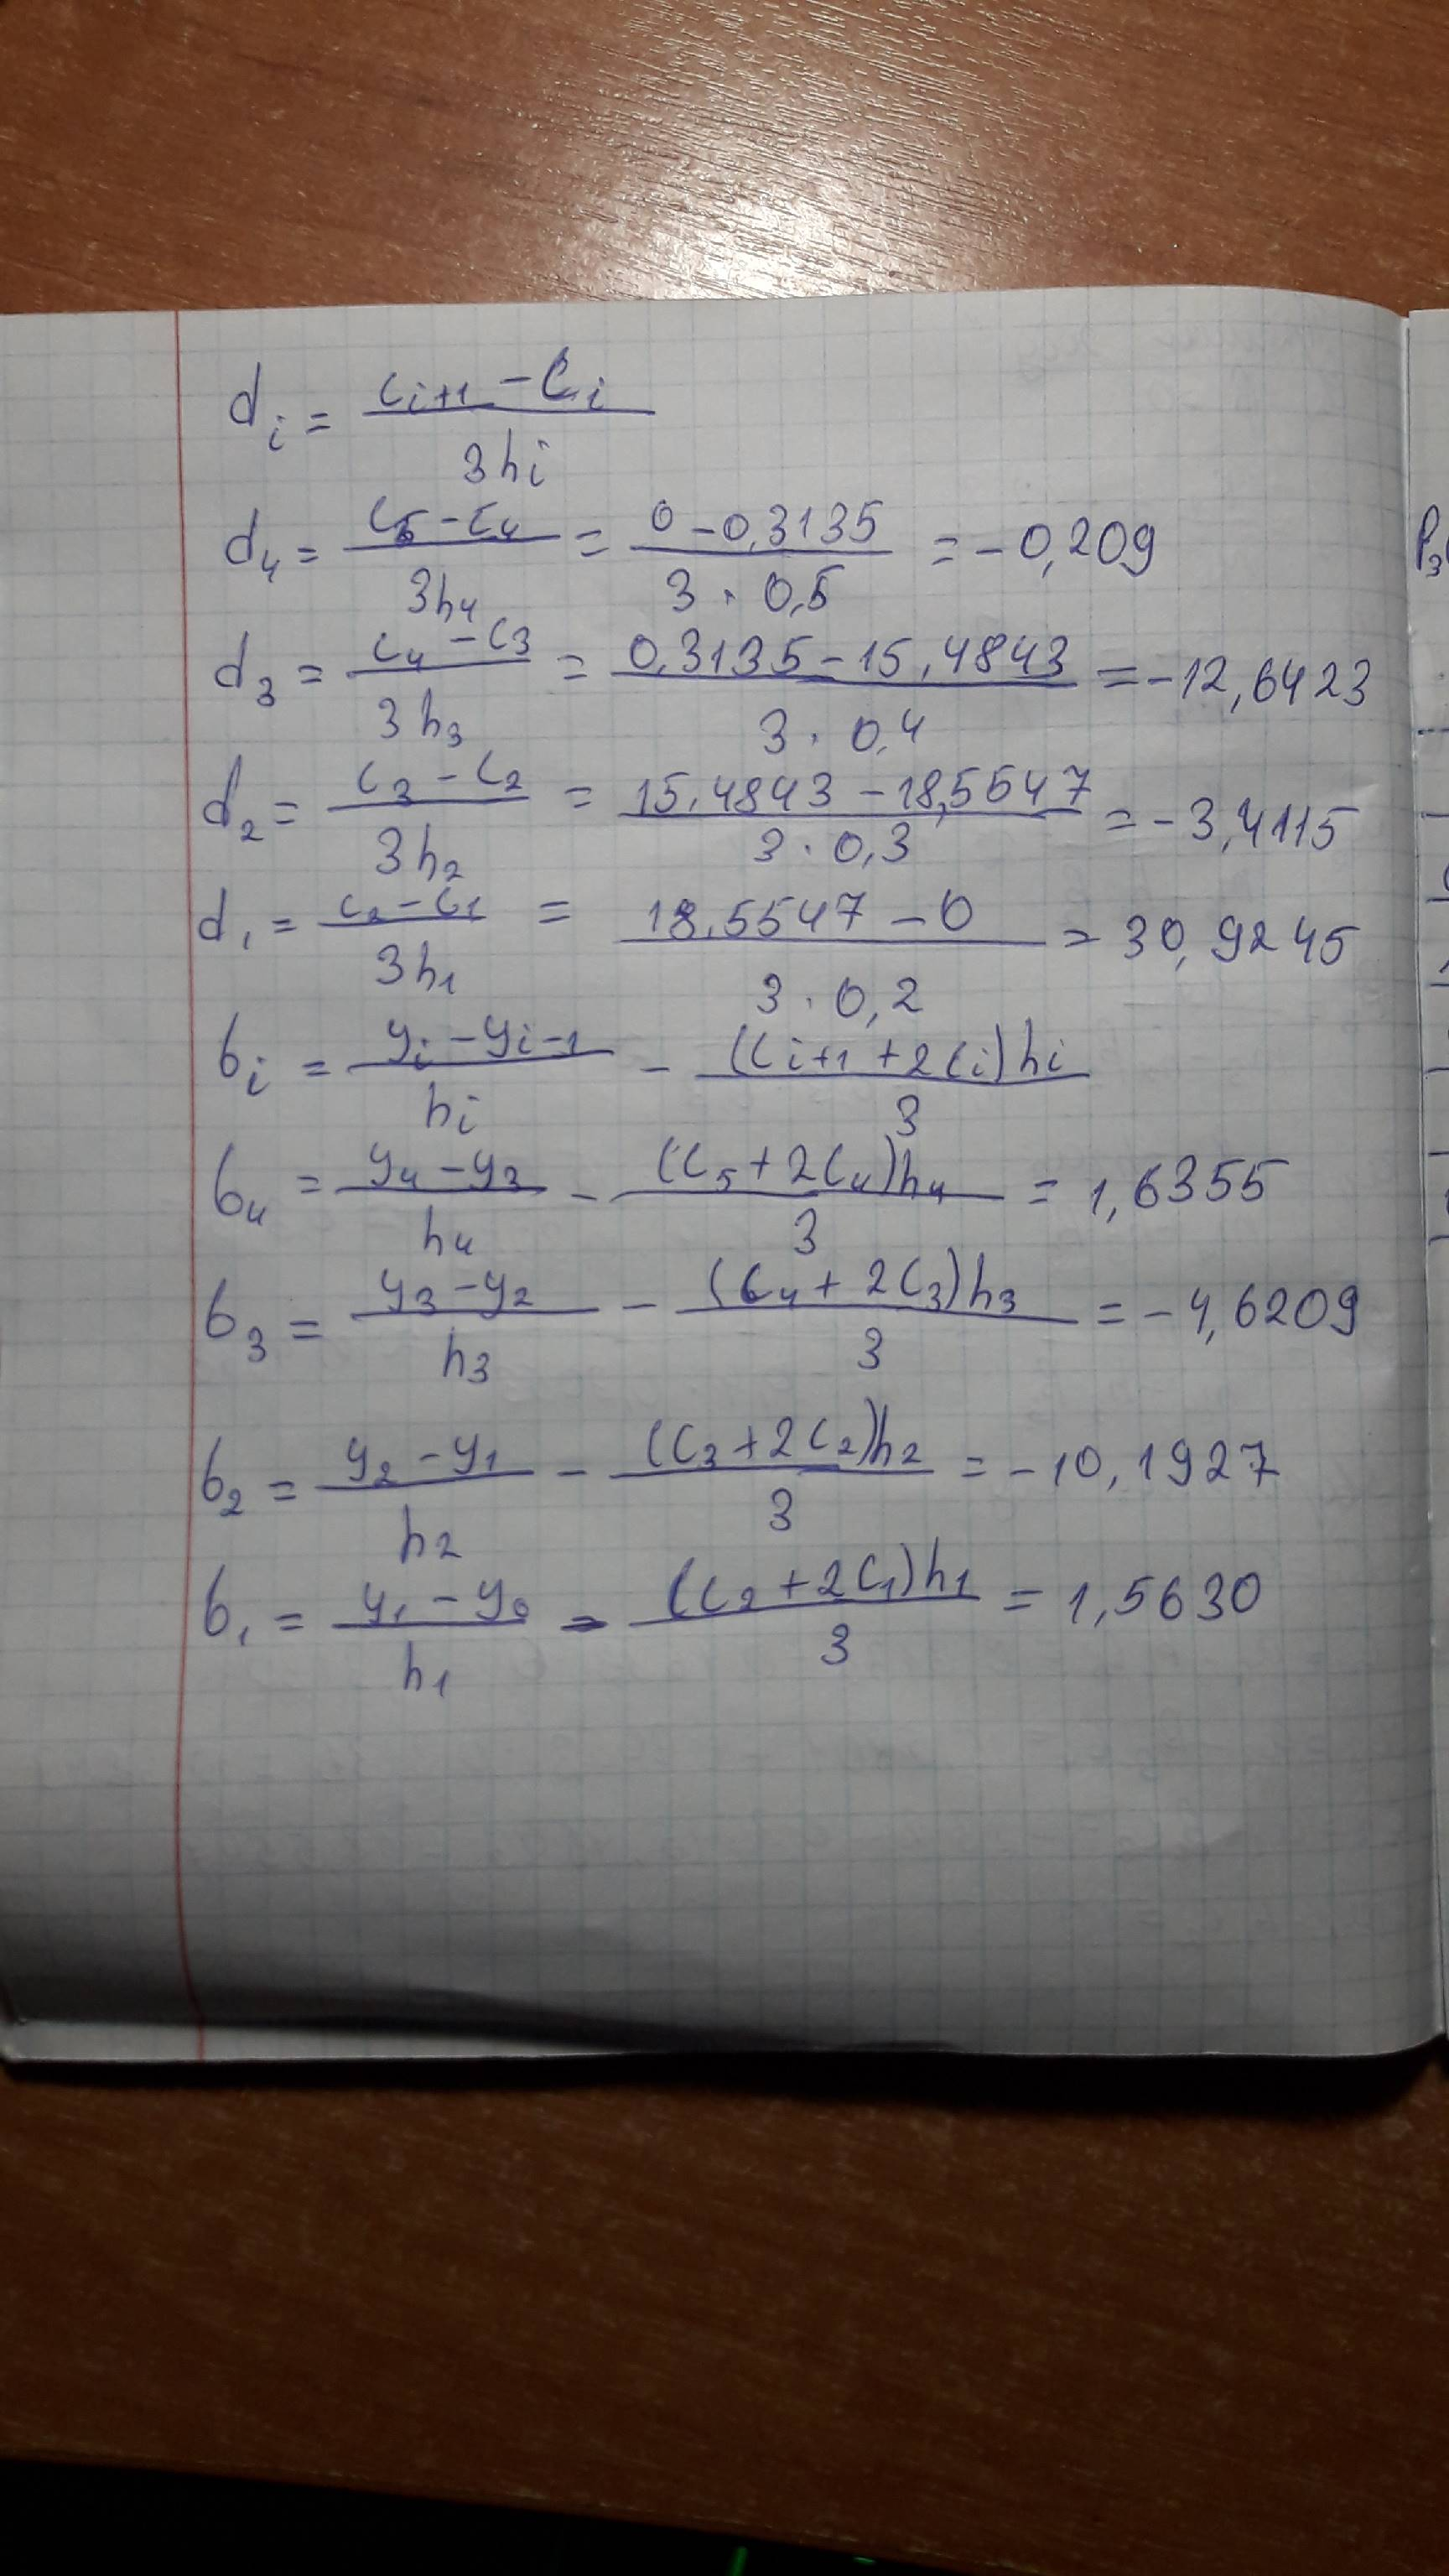 d_i = (c_{i+1} - c_i) / (3h_i)
d_4 = (c_5 - c_4) / (3h_4) = (0 - 0,3135) / (3 · 0,5) = -0,209
d_3 = (c_4 - c_3) / (3h_3) = (0,3135 - 15,4843) / (3 · 0,4) = -12,6423
d_2 = (c_3 - c_2) / (3h_2) = (15,4843 - 18,5547) / (3 · 0,3) = -3,4115
d_1 = (c_2 - c_1) / (3h_1) = (18,5547 - 0) / (3 · 0,2) = 30,9245
b_i = (y_i - y_{i-1}) / h_i - ((c_{i+1} + 2c_i)h_i) / 3
b_4 = (y_4 - y_3) / h_4 - ((c_5 + 2c_4)h_4) / 3 = 1,6355
b_3 = (y_3 - y_2) / h_3 - ((c_4 + 2c_3)h_3) / 3 = -4,6209
b_2 = (y_2 - y_1) / h_2 - ((c_3 + 2c_2)h_2) / 3 = -10,1927
b_1 = (y_1 - y_0) / h_1 - ((c_2 + 2c_1)h_1) / 3 = 1,5630